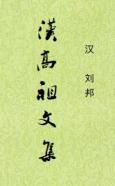 漢高祖文集
汉 刘邦